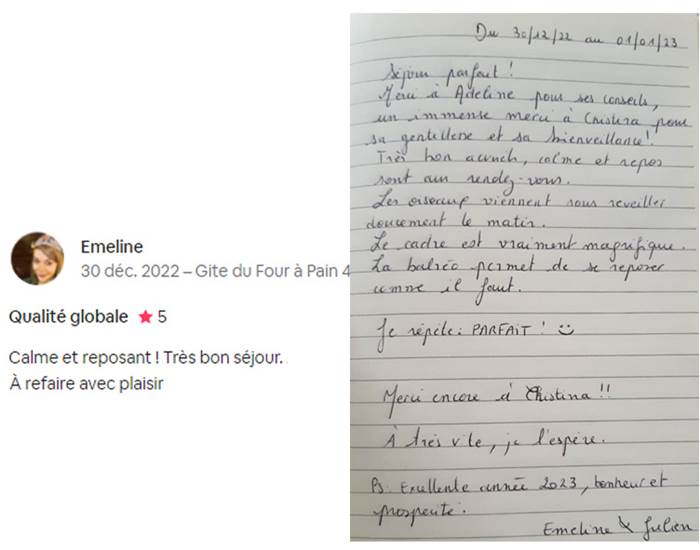 Emeline
30 déc. 2022 – Gite du Four à Pain 4
Qualité globale ★ 5
Calme et reposant ! Très bon séjour.
À refaire avec plaisir
Du 30/12/22 au 01/01/23
Séjour parfait !
Merci à Adeline pour ses conseils,
un immense merci à Christina pour
sa gentillesse et sa bienveillance!
Très bon accueil, calme et repos
sont aux rendez-vous.
Les oiseaux viennent nous réveiller
doucement le matin.
Le cadre est vraiment magnifique.
La balnéo permet de se reposer
comme il faut.
Je répète : PARFAIT !
Merci encore à Christina !!
À très vite, je l'espère.
Ps Excellente année 2023, bonheur et
prospérité.
Emeline & Julien